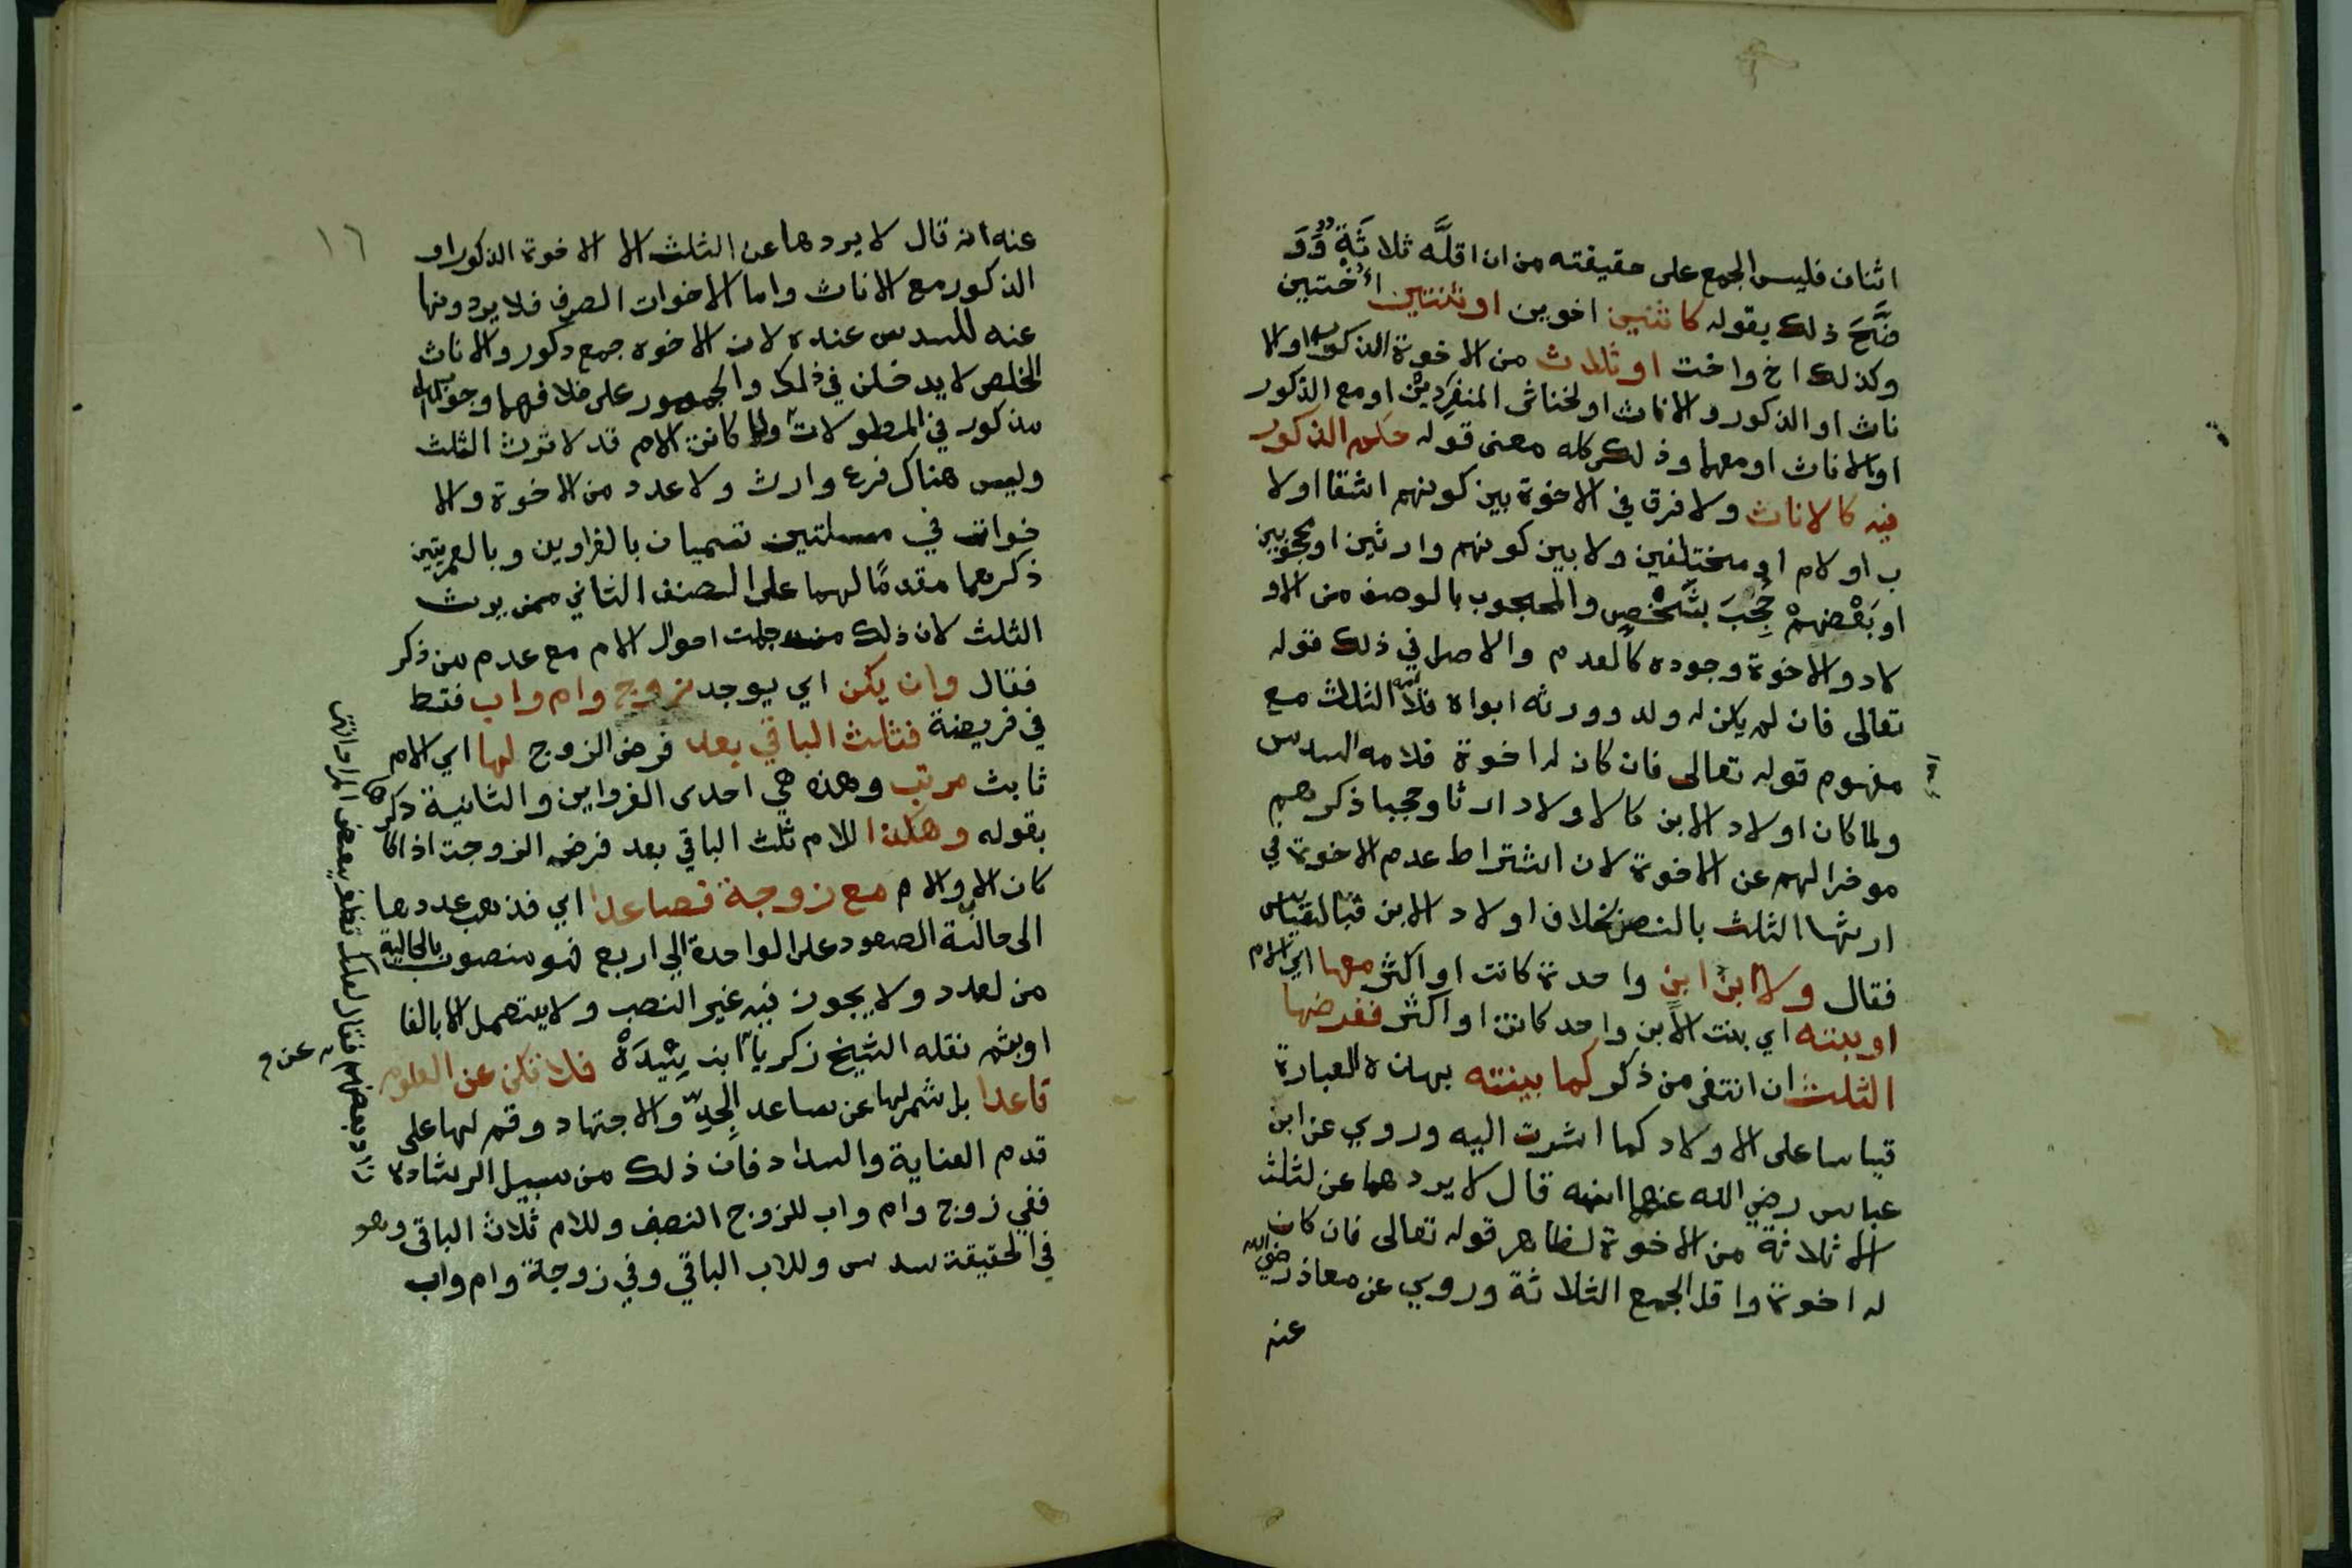 اثنان فليس الجمع على حقيقته من ان اقلَّه ثلاثَةٍ وَوَ
ضَّحَ ذلك بقوله كاثنين اخوين او ثنتين أُختين
وكذلك اخ واخت او ثلاث من الاخوة الذكور او الا
ناث او الذكور والاناث او لخناثى المنفردين او مع الذكور
او الاناث او معهما وذلك كله معنى قوله حكم الذكور
فيه كالاناث ولا فرق في الاخوة بين كونهم اشقا او لا
ب او لام او مختلفين ولا بين كونهم وارثين او محجوبين
او بَعْضُهمْ حُجِبَ بشَخْصٍ والمحجوب بالوصف من الاو
لاد والاخوة وجوده كالعدم والاصل في ذلك قوله
تعالى فان لم يكن له ولد وورثه ابواه فلامه الثلث مع
مفهوم قوله تعالى فان كان له اخوة فلامه السدس
ولما كان اولاد الابن كالاولاد ارثا وحجبا ذكرهم
موخرا لهم عن الاخوة لان اشتراط عدم الاخوة في
ارثها الثلث بالنص بخلاف اولاد الابن فبالقياس
فقال ولا ابن ابن واحدة كانت او اكثر معها اي الام
او بنته اي بنت الابن واحد كانت او اكثر ففرضها
الثلث ان انتفى من ذكر كما بينته بهذه العبارة
قياسا على الاولاد كما اشرت اليه وروي عن ابن
عباس رضي الله عنهما انه قال لا يردهما عن لثلث
الا ثلاثة من الاخوة لظاهر قوله تعالى فان كان
له اخوة واقل الجمع الثلاثة وروي عن معاذ رضي الله
عنه
١٦
عنه انه قال لا يردها عن الثلث الا الاخوة الذكور او
الذكور مع الاناث واما الاخوات الصرف فلا يردونها
عنه للسدس عنده لان الاخوه جمع دكور والاناث
الخلص لا يدخلن في ذلك والجمهور على خلافهما وجوابهما
مذكور في المطولات ولما كانت الام قد لا ترث الثلث
وليس هناك فرع وارث ولا عدد من الاخوة والا
خوات في مسلتين تسميان بالغراوين وبالعمريتين
ذكرهما مقدمًا لهما على الصنف الثاني ممن يرث
الثلث لان ذلك من جملت احوال الام مع عدم من ذكر
فقال وان يكن اي يوجد زوج وام واب فقط
في فريضة فثلث الباقي بعد فرض الزوج لها اي الام
ثابث مرتب وهذه هي احدى الغراوين والثانية ذكرها
بقوله وهكذا للام ثلث الباقي بعد فرض الزوجت اذا
كان الا والام مع زوجة فصاعدا اي فذهب عددها
الى حالة الصعود على الواحدة الي اربع فهو منصوب بالحالية
من لعدد ولا يجوز فيه غير النصب ولا يستعمل الا بالفا
او بثم نقله الشيخ زكريا ابن سِيْدَهْ فلا تكن عن العلوم
قاعدا بل شمر لها عن ساعد الجدِّ والاجتهاد وقم لها على
قدم العناية والسداد فان ذلك من سبيل الرشاد
ففي زوج وام واب للزوج النصف وللام ثلاث الباقى وهو
في الحقيقة سدس وللاب الباقي وفي زوجة وام واب
زاد بعضهم فقال لعلك تظفر ببعض المراد